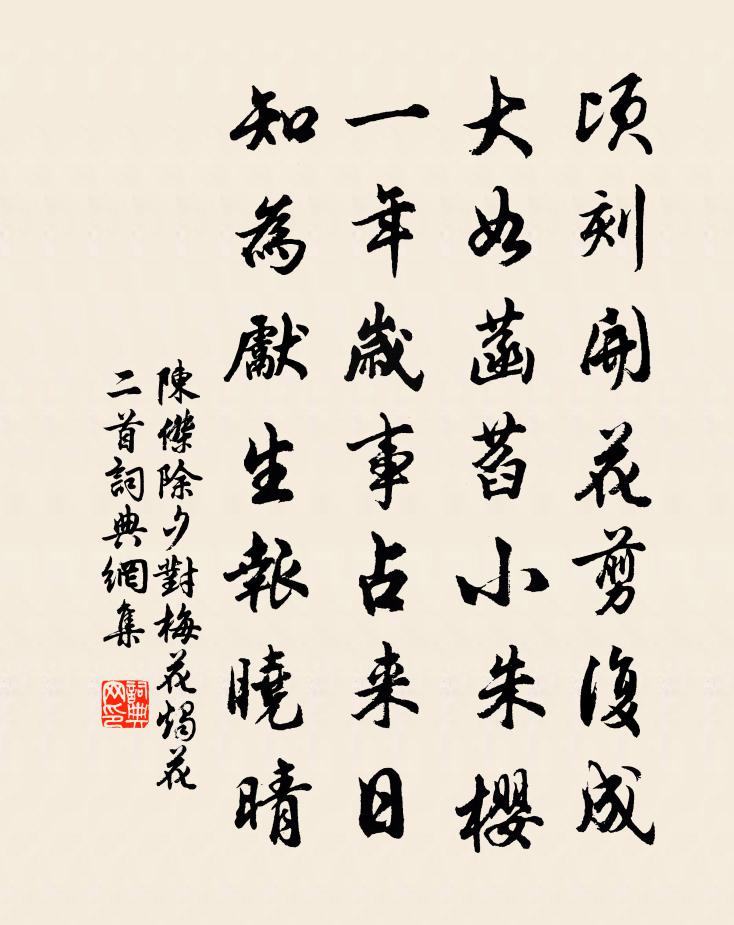 頃刻開花剪復成
大如菡萏小朱櫻
一年歲事占来日
知為獻生報曉晴
陳傑除夕對梅花燭花
二首詞典網集
詞典网印